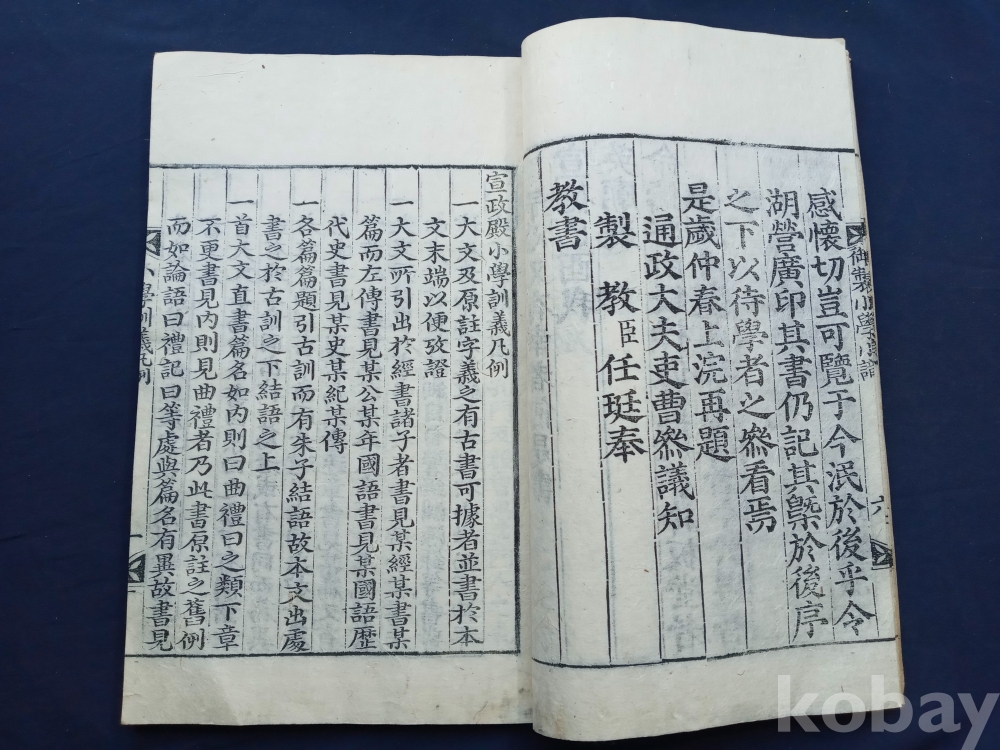 感懷切豈可覽于今泯於後乎今
湖營廣印其書仍記其槩於後序
之下以待學者之叅看焉
是歲仲春上浣再題
通政大夫吏曹叅議知
製 教臣任珽奉
教書
御製小學
六
宣政殿小學訓義凡例
一大文及原註字義之有古書可據者並書於本
文末端以便攷證
一大文所引出於經書諸子者書見某經某書某
篇而左傳書見某公某年國語書見某國語歷
代史書見某史某紀某傳
一各篇篇題引古訓而有朱子結語故本文出處
書之於古訓之下結語之上
一首大文直書篇名如內則曰曲禮曰之類下章
不更書見內則見曲禮者乃此書原註之舊例
而如論語曰禮記曰等處與篇名有異故書見
小學訓義凡例
一
kobay